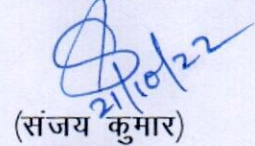 21/10/22
(संजय कुमार)